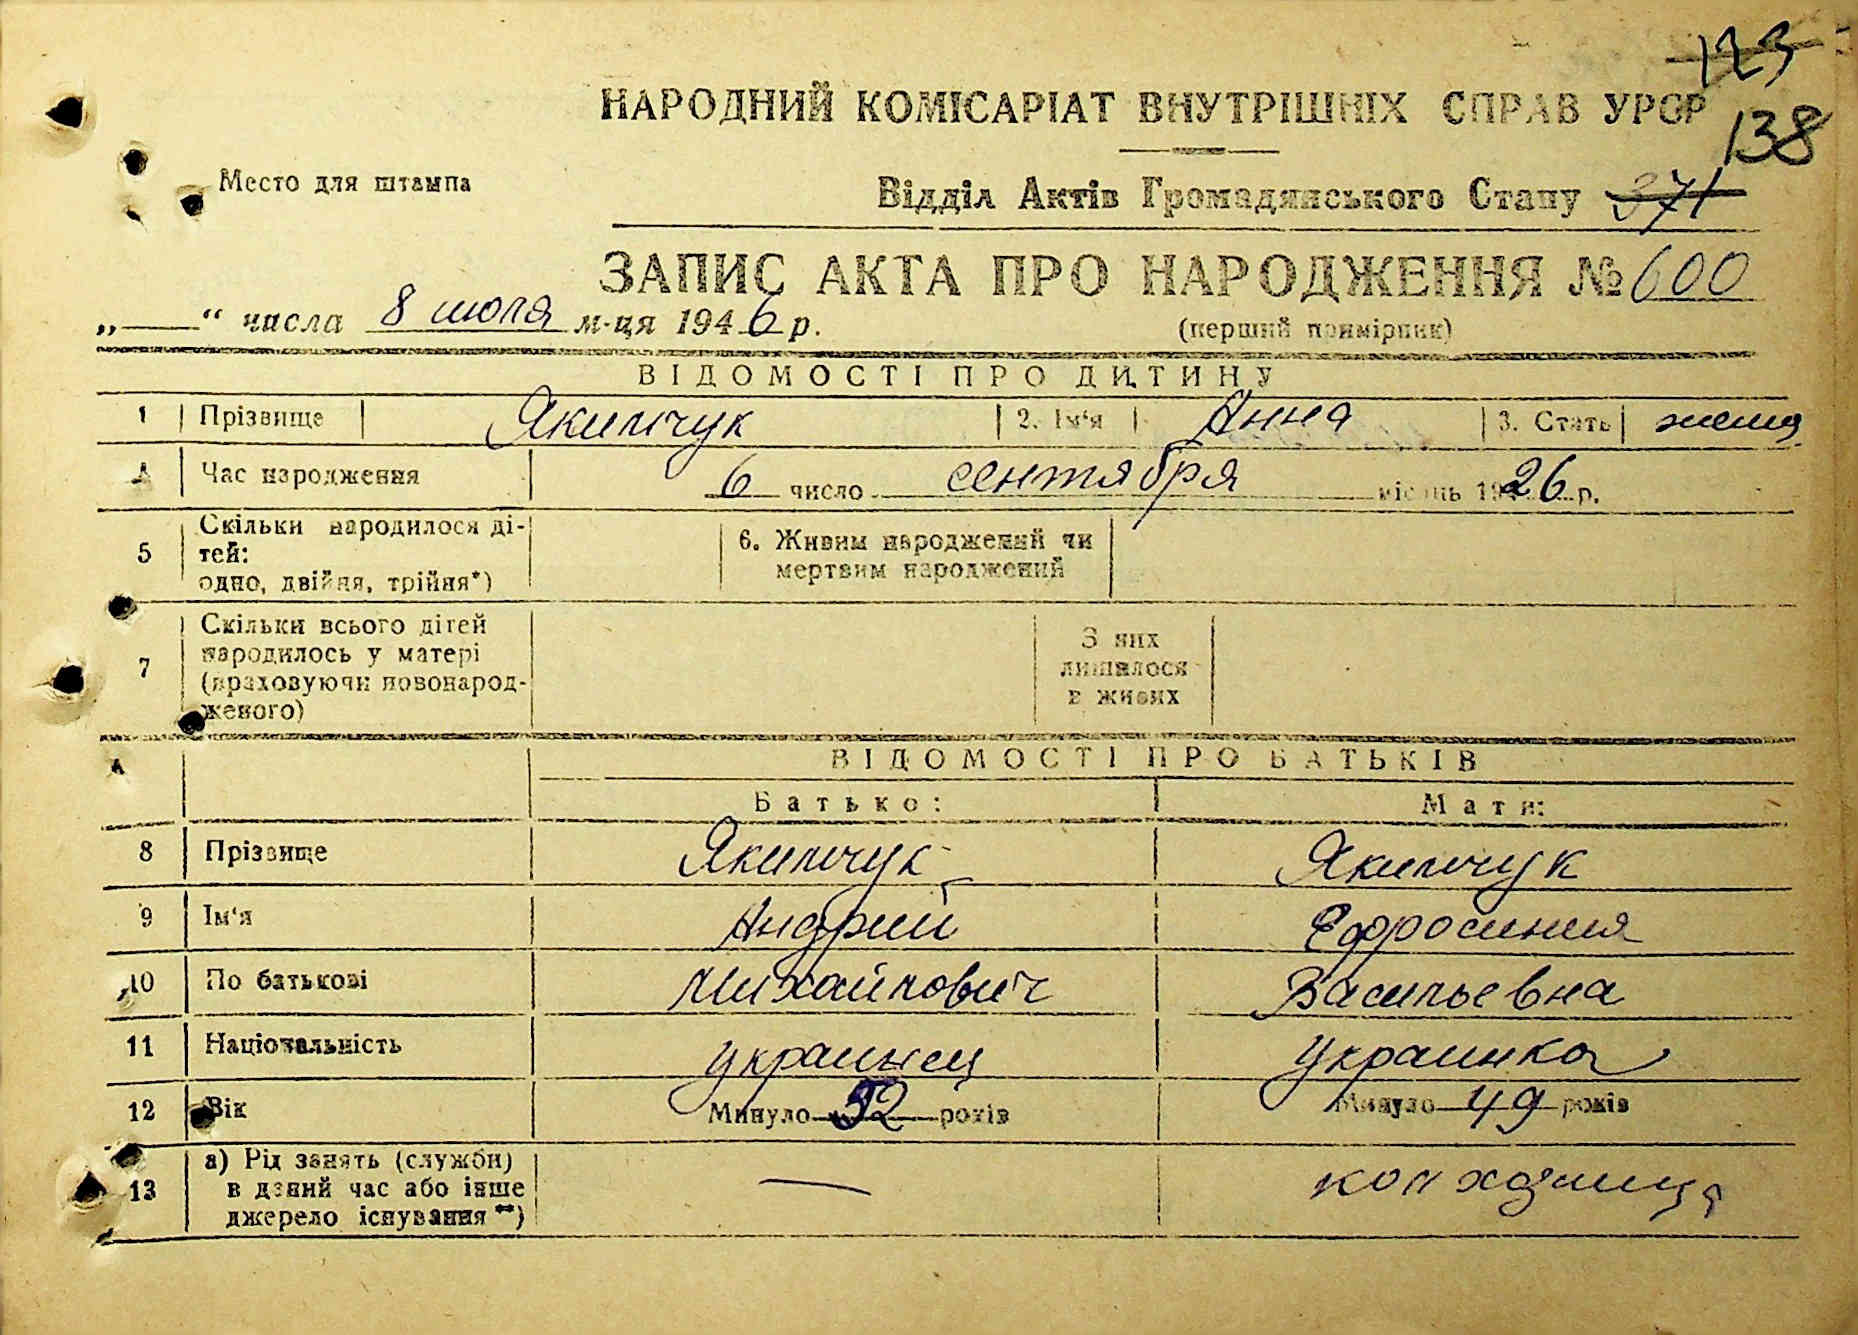 123
НАРОДНИЙ КОМІСАРІАТ ВНУТРІШНІХ СПРАВ УРСР
138
Место для штампа
Відділ Актів Громадянського Стану 371
ЗАПИС АКТА ПРО НАРОДЖЕННЯ № 600
„——“ числа 8 июля м-ця 1946 р.
(перший примірник)
ВІДОМОСТІ ПРО ДИТИНУ
1 Прізвище Якимчук 2. Ім‘я Анна 3. Стать женщ.
4 Час народження 6 число сентября місяць 1926 р.
5 Скільки народилося ді-
тей:
одно, двійня, трійня*)
6. Живим народжений чи
мертвим народжений
7 Скільки всього дітей
народилось у матері
(враховуючи новонарод-
женого)
З них
лишилося
в живих
ВІДОМОСТІ ПРО БАТЬКІВ
Батько: Мати:
8 Прізвище Якимчук Якимчук
9 Ім‘я Андрий Ефросиния
10 По батькові Михайлович Васильевна
11 Національність украинец украинка
12 Вік Минуло 52 років Минуло 49 років
13 а) Рід занять (служби)
в даний час або інше
джерело існування**)
— колхозница